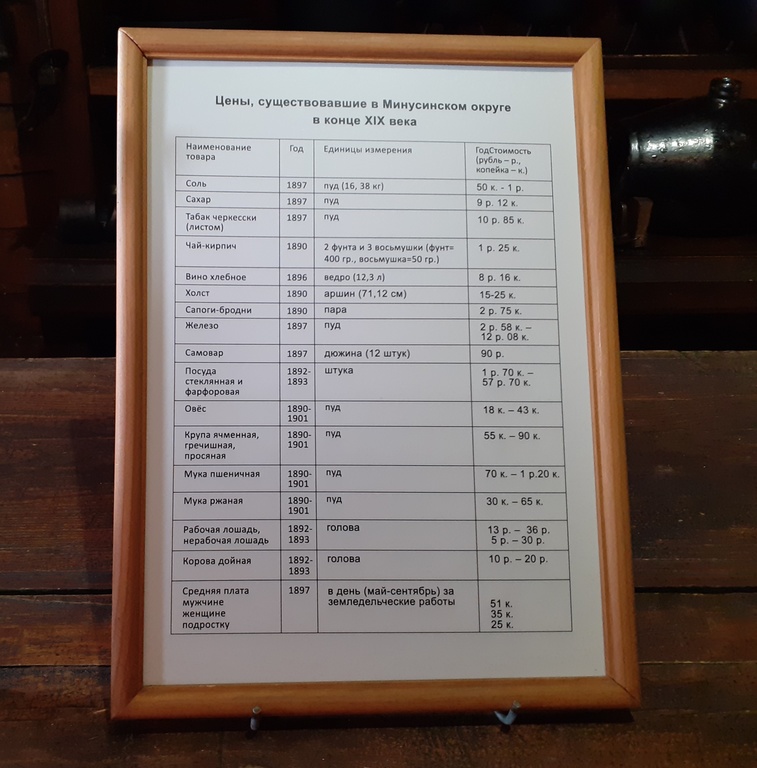 Цены, существовавшие в Минусинском округе
в конце XIX века
Наименование товара Год Единицы измерения ГодСтоимость (рубль – р., копейка – к.)
Соль 1897 пуд (16, 38 кг) 50 к. - 1 р.
Сахар 1897 пуд 9 р. 12 к.
Табак черкесски (листом) 1897 пуд 10 р. 85 к.
Чай-кирпич 1890 2 фунта и 3 восьмушки (фунт= 400 гр., восьмушка=50 гр.) 1 р. 25 к.
Вино хлебное 1896 ведро (12,3 л) 8 р. 16 к.
Холст 1890 аршин (71,12 см) 15-25 к.
Сапоги-бродни 1890 пара 2 р. 75 к.
Железо 1897 пуд 2 р. 58 к. – 12 р. 08 к.
Самовар 1897 дюжина (12 штук) 90 р.
Посуда стеклянная и фарфоровая 1892-1893 штука 1 р. 70 к. – 57 р. 70 к.
Овёс 1890-1901 пуд 18 к. – 43 к.
Крупа ячменная, гречишная, просяная 1890-1901 пуд 55 к. – 90 к.
Мука пшеничная 1890-1901 пуд 70 к. – 1 р.20 к.
Мука ржаная 1890-1901 пуд 30 к. – 65 к.
Рабочая лошадь, нерабочая лошадь 1892-1893 голова 13 р. – 36 р. 5 р. – 30 р.
Корова дойная 1892-1893 голова 10 р. – 20 р.
Средняя плата мужчине женщине подростку 1897 в день (май-сентябрь) за земледельческие работы 51 к. 35 к. 25 к.